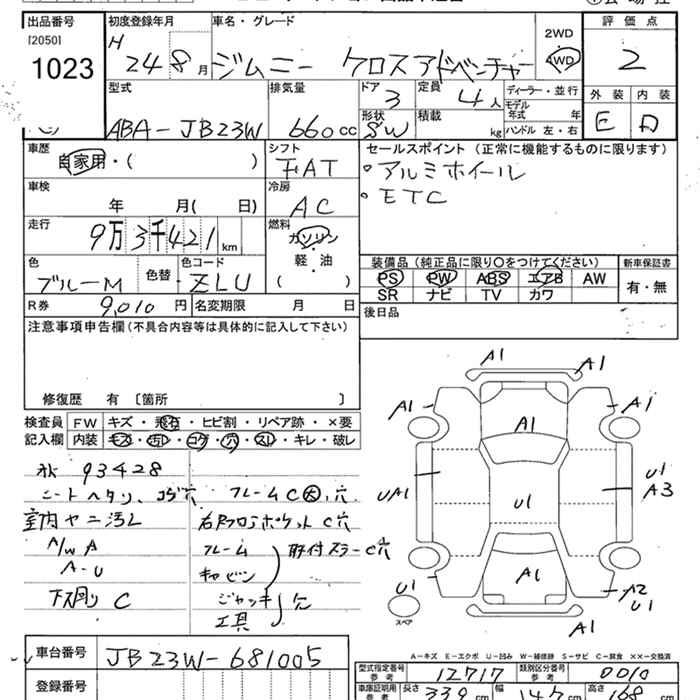 出品番号 初度登録年月 車名・グレード 評価点
[2050]
1023
H 24 8月 ジムニー クロスアドベンチャー 2WD 4WD 2
型式 排気量 ドア 定員 ディーラー・並行 外装 内装
ABA-JB23W 660cc 3 4人 モデル年式 年
形状 SW 積載 kg ハンドル 左・右 E D
車歴 自家用・( ) シフト FAT
セールスポイント (正常に機能するものに限ります)
・アルミホイール
・ETC
車検 年 月( 日) 冷房 AC
走行 9万3千421km 燃料 ガソリン・軽・油 ( )
装備品 (純正品に限り○をつけてください) 新車保証書
PS PW ABS エアB AW 有・無
SR ナビ TV カワ
色 ブルーM 色替 色コード ZLU
R券 9,010円 名変期限 月 日
後日品
注意事項申告欄 (不具合内容等は具体的に記入して下さい)
修復歴 有 〔箇所 〕
検査員 FW キズ・飛石・ヒビ割・リペア跡・×要
記入欄 内装 キズ・汚レ・コゲ・穴・スレ・キレ・破レ
93428
シートヘタリ、コゲ穴 フレームC大、穴
室内ヤニ汚レ 右Rフロアポケット C穴
A/W A フレーム 取付ステーC穴
A-U キャビン
下廻り C ジャッキ 欠
工具
A1 A1
A1 A1 A1
UA1 U1 U1 A3
U1 A1 A2 U1
スペア A1
A-キズ E-エクボ U-凹み W-補修跡 S-サビ C-腐食 ××-交換済
車台番号 JB23W-681005
登録番号
型式指定番号 参考 12717 類別区分番号 参考 0010
車庫証明用 参考 長さ 339cm 幅 147cm 高さ 168cm